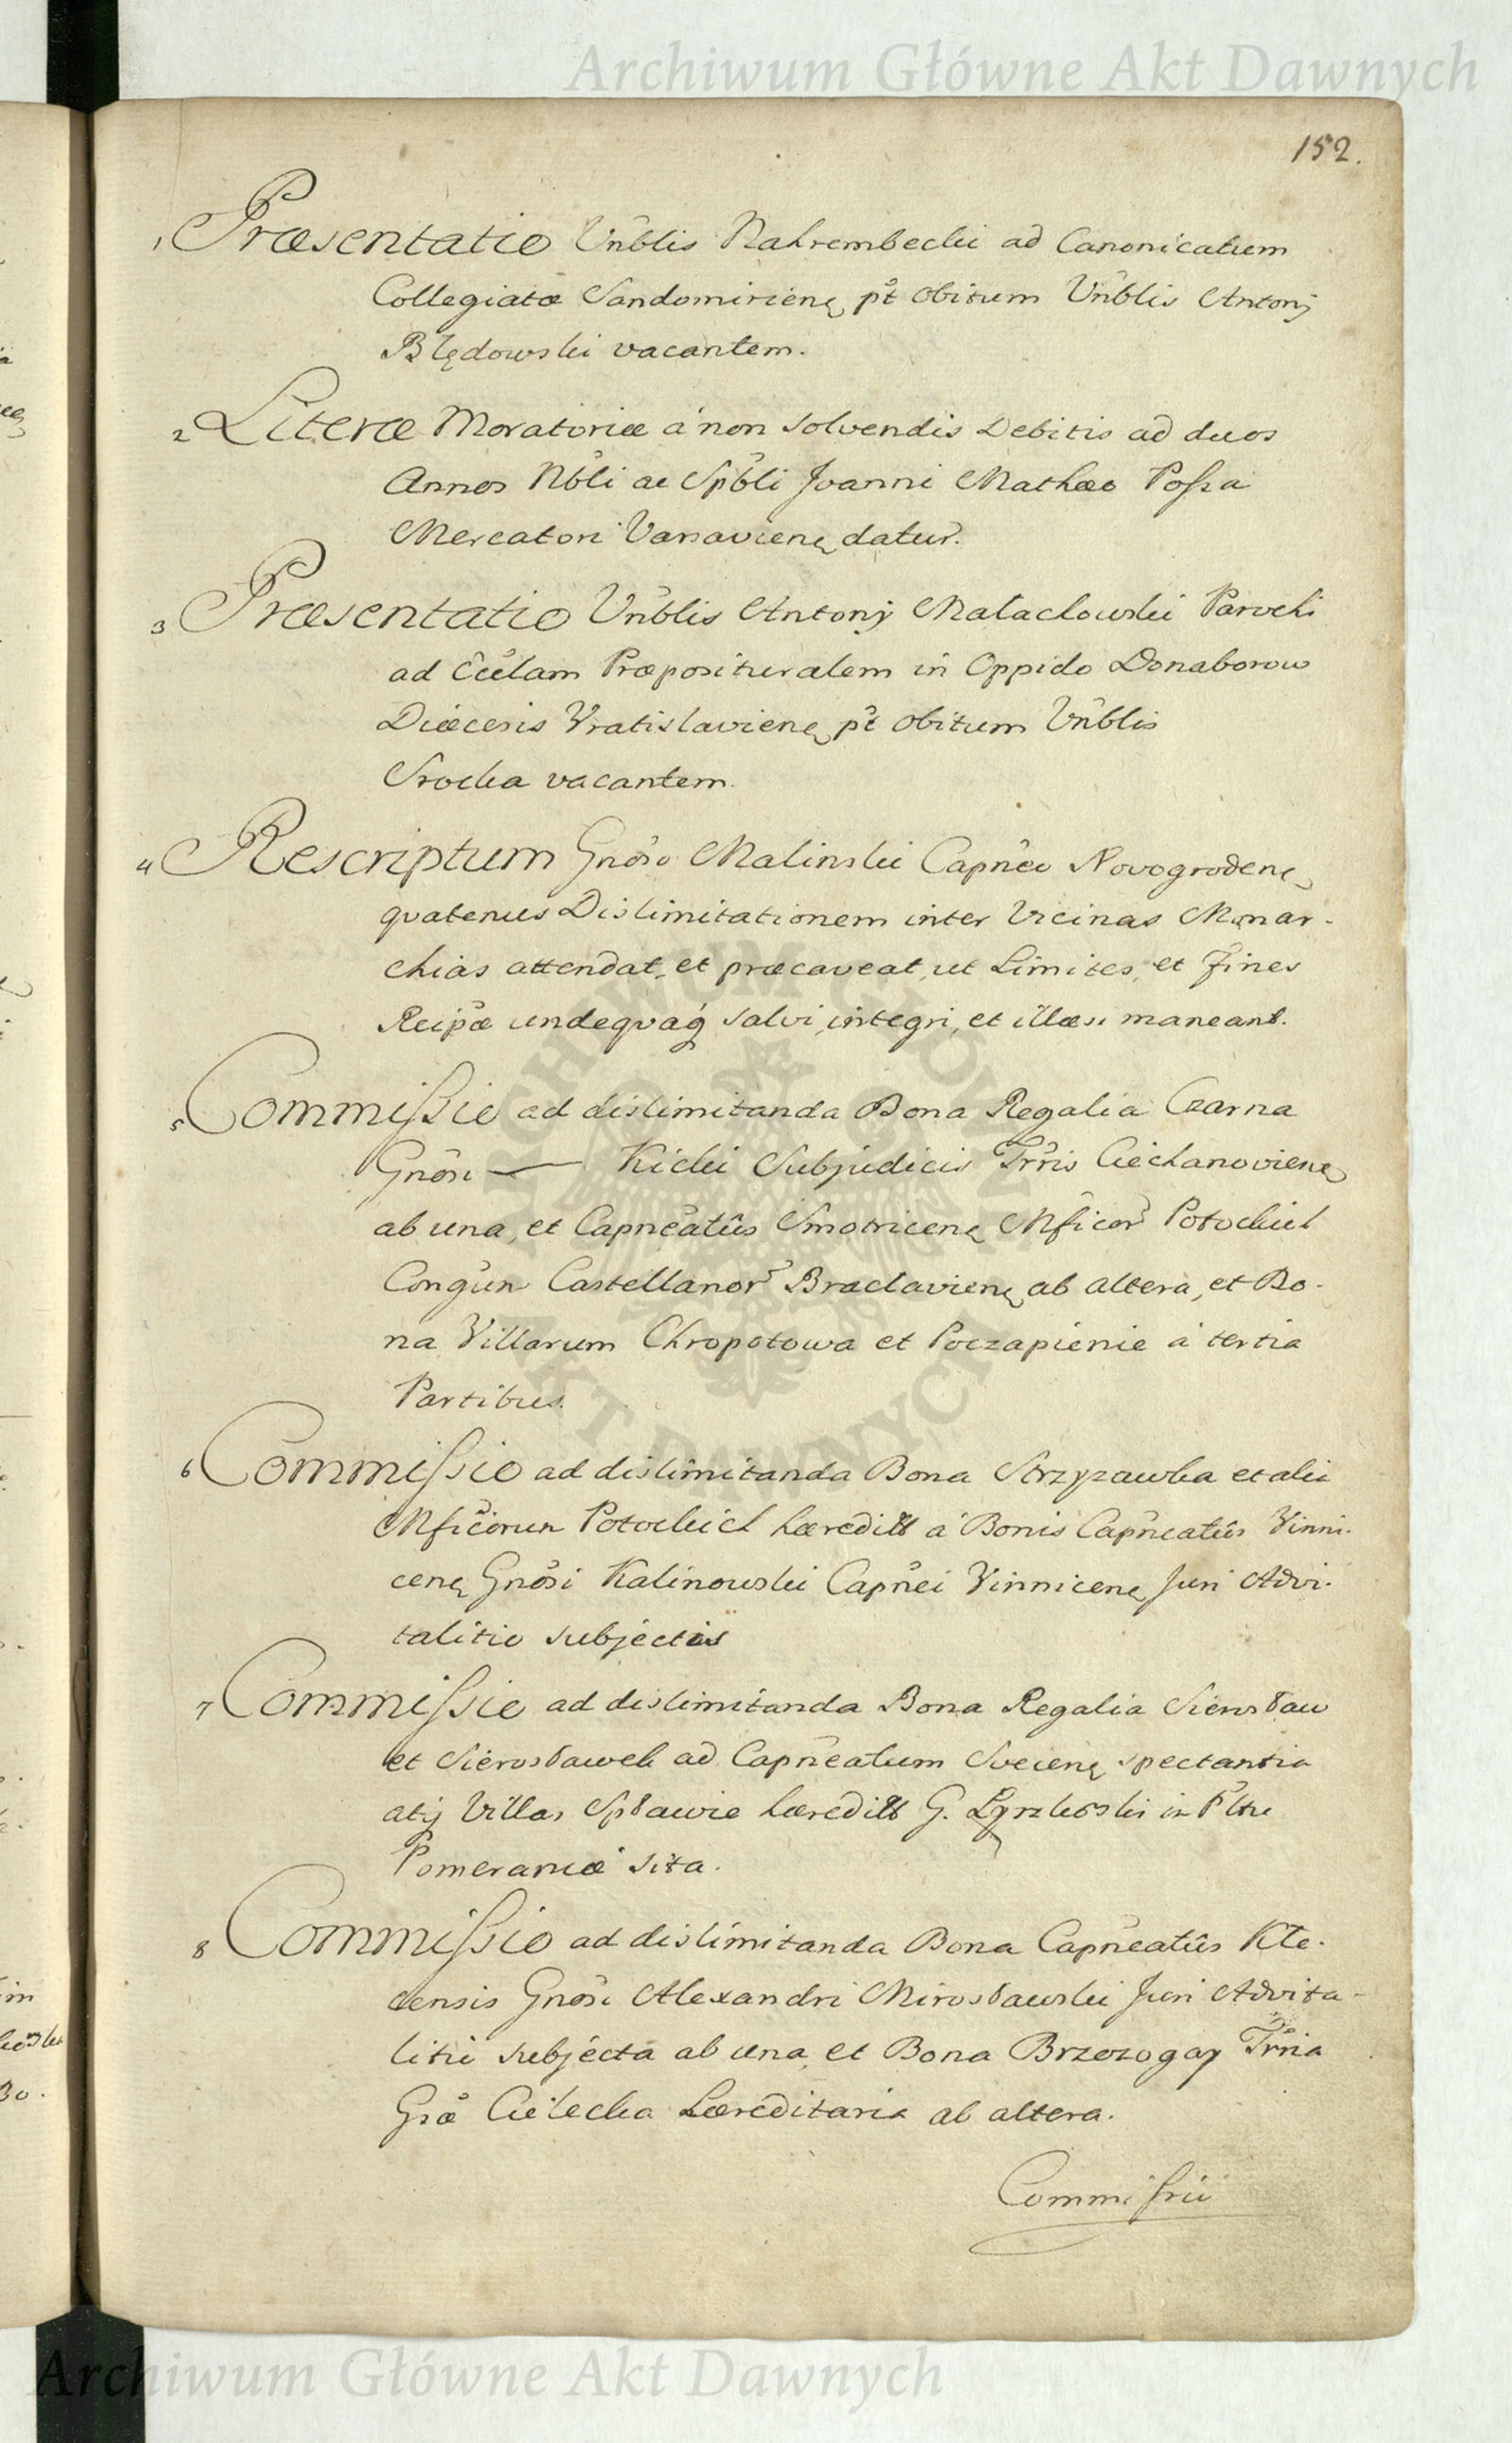 Archiwum Główne Akt Dawnych
152.
1 Præsentatio Vnblis Nahrembecki ad Canonicatum
Collegiatæ Sandomirienę pt obitum Vnblis Antonj
Błędowski vacantem.
2 Literæ Moratoriæ á non solvendis Debitis ad duos
Annos Nbli ac Spbli Joanni Mathæo Poſsa
Mercatori Varsavienę datur.
3 Præsentatio Vnblis Antonij Małachowski Parochi
ad Ecclam Præposituralem in Oppido Donaborow
Diæcesis Vratislavienę pt obitum Vnblis
Srocka vacantem.
4 Rescriptum Gnoso Malinski Capneo Novogrodenę
quatenus Dislimitationem inter Vicinas Monar-
chias attendat, et præcaveat, ut Limites, et Fines
Reipæ undequaq salvi, integri, et illæsi maneant.
5 Commiſsio ad dislimitanda Bona Regalia Czarna
Gnosi — Kicki Subjudicis Trris Ciechanovienę
ab una, et Capneatûs Smotricenę Mficor Potockich
Congun Castellanor Braclavienę ab altera, et Bo-
na Villarum Chropotowa et Poczapienie á tertia
Partibus.
6 Commiſsio ad dislimitanda Bona Strzyzawka et alii
Mficorun Potockich hæredittt á Bonis Capneatûs Vinni-
cenę Gnosi Kalinowski Capnei Vinnicenę Juri Advi-
talitio subjectis
7 Commiſsio ad dislimitanda Bona Regalia Sierosław
et Sierosławek ad Capneatum Svecenę spectantia
atq Villas Spławie hæredittt G. in Pltu
Pomeraniæ sita.
8 Commiſsio ad dislimitanda Bona Capneatûs Kłe-
censis Gnosi Alexandri Mirosławski Juri Advita-
litio subjecta ab una, et Bona Brzozogay Trria
Gsæ Cielecka Hæreditaria ab altera.
Commiſsii
ARCHIWUM GŁÓWNE AKT DAWNYCH
Archiwum Główne Akt Dawnych